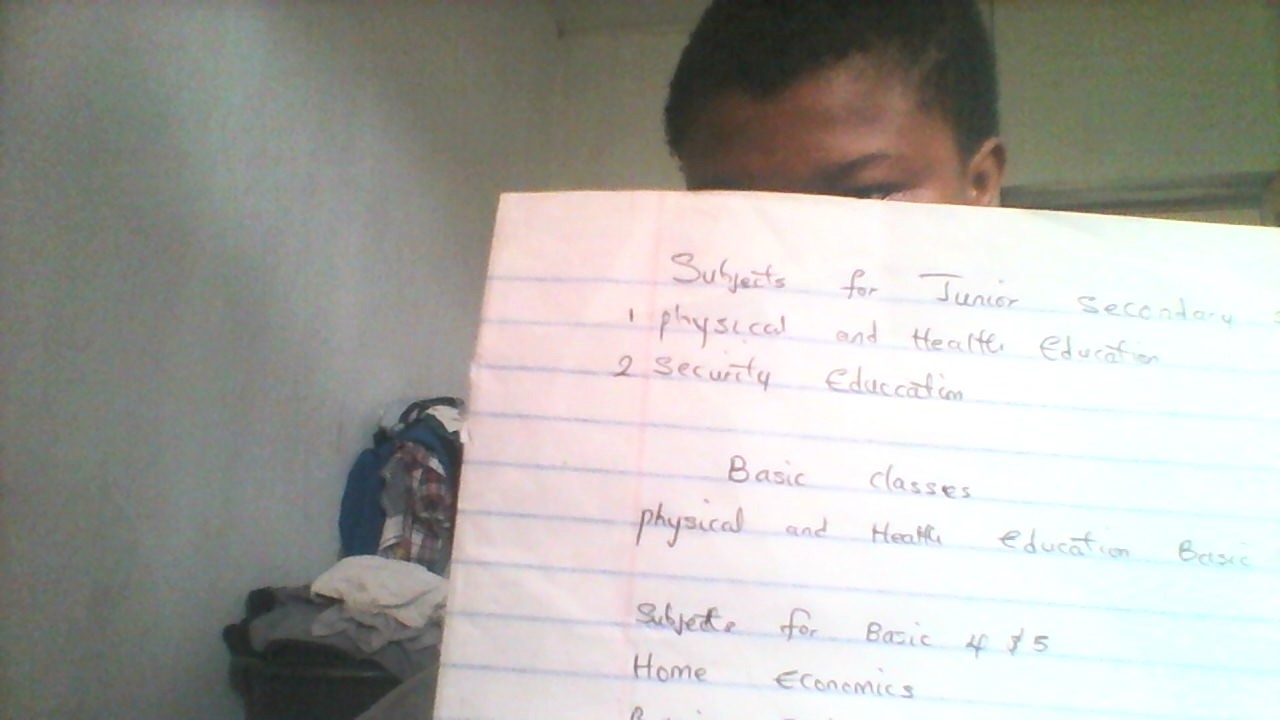 Subjects for Junior Secondary
1 physical and Health Education
2 Security Educcation
Basic classes
physical and Health Education Basic
Subjects for Basic 4 $ 5
Home Economics